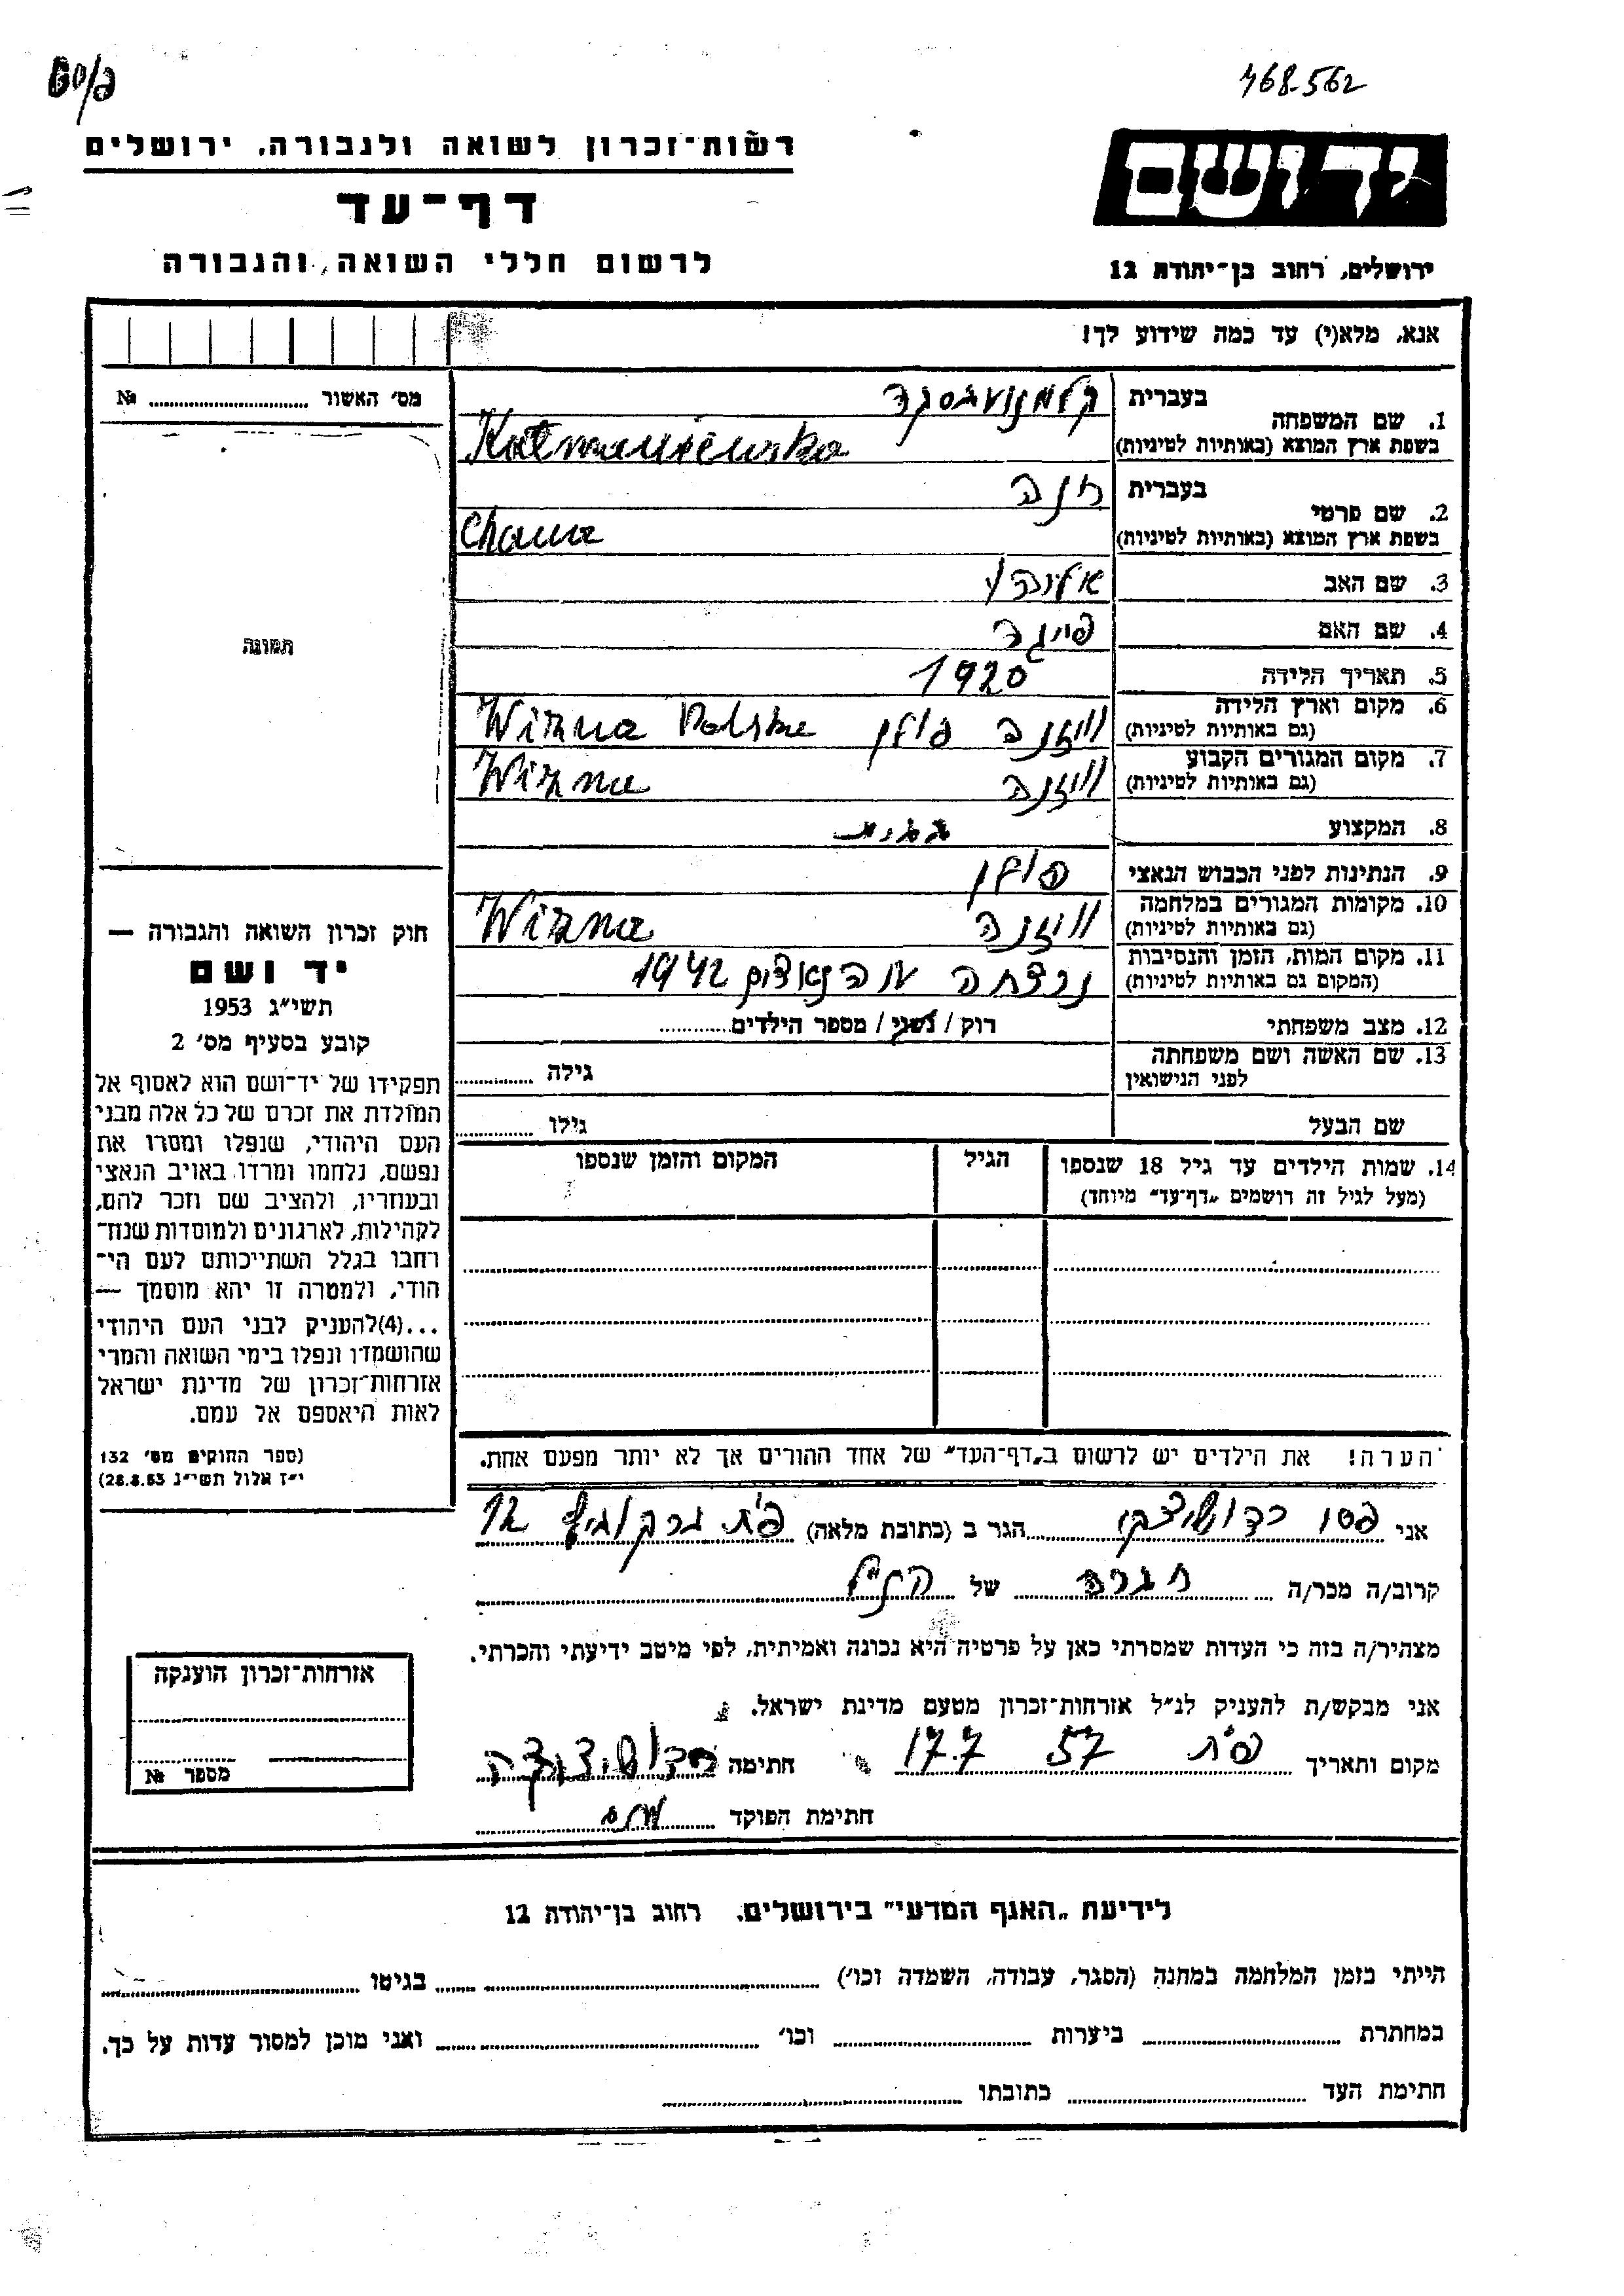 468.562
רשות־זכרון לשואה ולגבורה, ירושלים
דף־עד
לרשום חללי השואה והגבורה
יד ושם
ירושלים, רחוב בן־יהודה 12
אנא, מלא(י) עד כמה שידוע לך!
מס׳ האשור ........ №
תמונה
1. שם המשפחה
בעברית
בשפת ארץ המוצא (באותיות לטיניות) Kalmaniewska
2. שם פרטי
בעברית חנה
בשפת ארץ המוצא (באותיות לטיניות) Chana
3. שם האב
4. שם האם פייגה
5. תאריך הלידה 1920
6. מקום וארץ הלידה
(גם באותיות לטיניות) וויזנה פולין Wizna Polska
7. מקום המגורים הקבוע
(גם באותיות לטיניות) וויזנה Wizna
8. המקצוע
9. הנתינות לפני הכבוש הנאצי פולין
10. מקומות המגורים במלחמה
(גם באותיות לטיניות) וויזנה Wizna
11. מקום המות, הזמן והנסיבות
(המקום גם באותיות לטיניות) נרצחה ע הנאצים 1942
12. מצב משפחתי רוק / נשוי / מספר הילדים........
13. שם האשה ושם משפחתה
לפני הנישואין גילה ........
שם הבעל גילו ........
14. שמות הילדים עד גיל 18 שנספו
(מעל לגיל זה רושמים „דף־עד״ מיוחד)
הגיל
המקום והזמן שנספו
הערה! את הילדים יש לרשום ב„דף־העד״ של אחד ההורים אך לא יותר מפעם אחת.
חוק זכרון השואה והגבורה —
יד ושם
תשי״ג 1953
קובע בסעיף מס׳ 2
תפקידו של יד־ושם הוא לאסוף אל
המולדת את זכרם של כל אלה מבני
העם היהודי, שנפלו ומסרו את
נפשם, נלחמו ומרדו באויב הנאצי
ובעוזריו, ולהציב שם וזכר להם,
לקהילות, לארגונים ולמוסדות שנח־
רחבו בגלל השתייכותם לעם הי־
הודי, ולמטרה זו יהא מוסמך —
...(4)להעניק לבני העם היהודי
שהושמדו ונפלו בימי השואה והמרי
אזרחות־זכרון של מדינת ישראל
לאות היאספם אל עמם.
(ספר החוקים מס׳ 132
י״ז אלול תשי״ג 28.8.53)
אני ........ הגר ב (כתובת מלאה) פ״ת 12
קרוב/ה מכר/ה חברה של הנ״ל
מצהיר/ה בזה כי העדות שמסרתי כאן על פרטיה היא נכונה ואמיתית, לפי מיטב ידיעתי והכרתי.
אני מבקש/ת להעניק לנ״ל אזרחות־זכרון מטעם מדינת ישראל.
מקום ותאריך פ״ת 57 17.7 חתימה
חתימת הפוקד
אזרחות־זכרון הוענקה
מספר №
לידיעת „האגף המדעי״ בירושלים, רחוב בן־יהודה 12
הייתי בזמן המלחמה במחנה (הסגר, עבודה, השמדה וכו׳) ........ בגיטו ........
במחתרת ........ ביערות ........ וכו׳ ........ ואני מוכן למסור עדות על כך.
חתימת העד ........ כתובתו ........